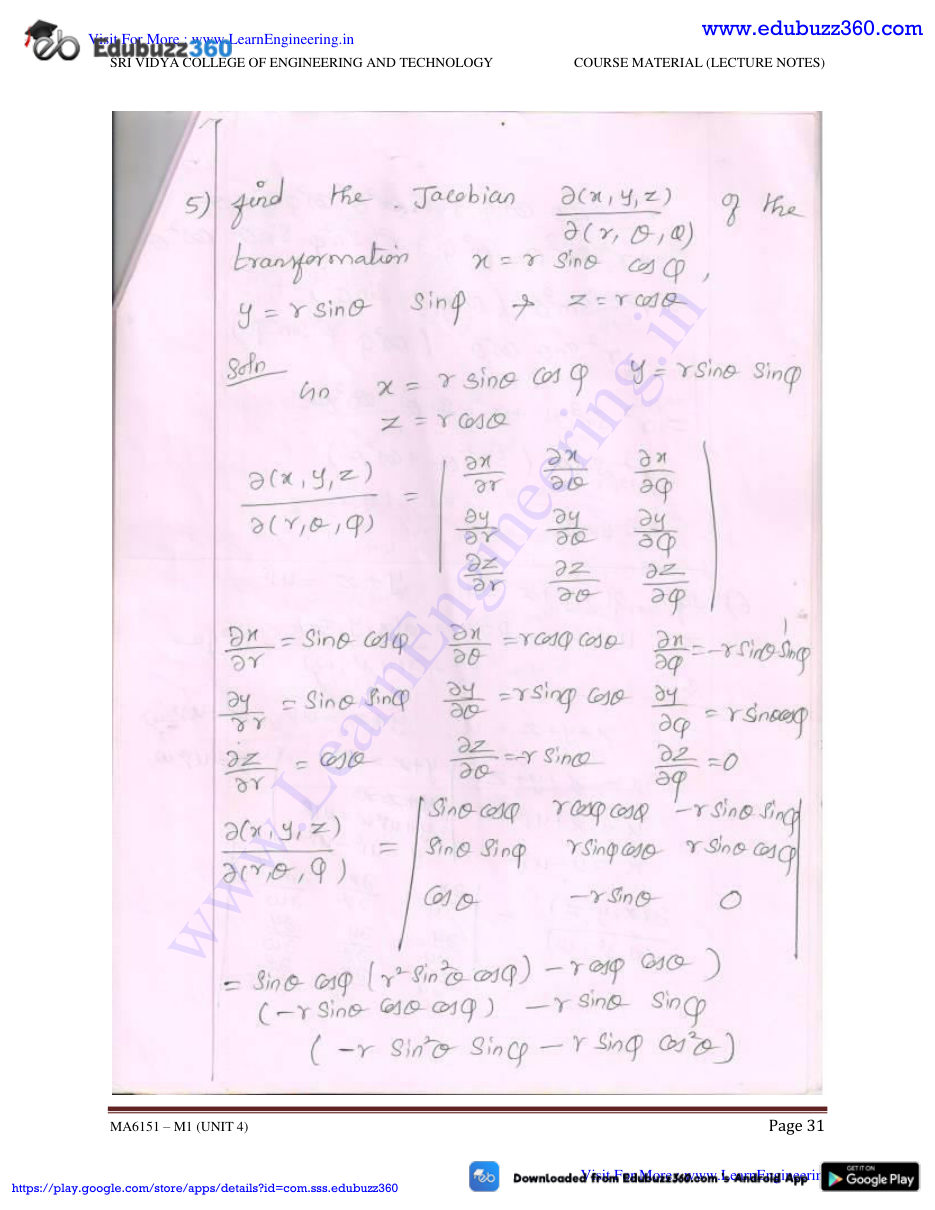 www.edubuzz360.com
Visit For More : www.LearnEngineering.in
Edubuzz360
SRI VIDYA COLLEGE OF ENGINEERING AND TECHNOLOGY COURSE MATERIAL (LECTURE NOTES)
5) find the Jacobian ∂(x, y, z)/∂(r, θ, φ) of the
transformation x = r sinθ cosφ,
y = r sinθ sinφ & z = r cosθ
Soln
Gn x = r sinθ cosφ y = r sinθ sinφ
z = r cosθ
∂(x, y, z)/∂(r, θ, φ) = | ∂x/∂r ∂x/∂θ ∂x/∂φ |
∂y/∂r ∂y/∂θ ∂y/∂φ
∂z/∂r ∂z/∂θ ∂z/∂φ
∂x/∂r = sinθ cosφ ∂x/∂θ = r cosφ cosθ ∂x/∂φ = -r sinθ sinφ
∂y/∂r = sinθ sinφ ∂y/∂θ = r sinφ cosθ ∂y/∂φ = r sinθ cosφ
∂z/∂r = cosθ ∂z/∂θ = -r sinθ ∂z/∂φ = 0
∂(x, y, z)/∂(r, θ, φ) = | sinθ cosφ r cosφ cosθ -r sinθ sinφ |
sinθ sinφ r sinφ cosθ r sinθ cosφ
cosθ -r sinθ 0
= sinθ cosφ (r² sin²θ cosφ) - r cosφ cosθ )
(-r sinθ cosθ cosφ) - r sinθ sinφ
( -r sin²θ sinφ - r sinφ cos²θ )
www.LearnEngineering.in
MA6151 – M1 (UNIT 4) Page 31
https://play.google.com/store/apps/details?id=com.sss.edubuzz360
Downloaded from EduBuzz360.com 's Android App
Visit For More : www.LearnEngineerin
GET IT ON
Google Play